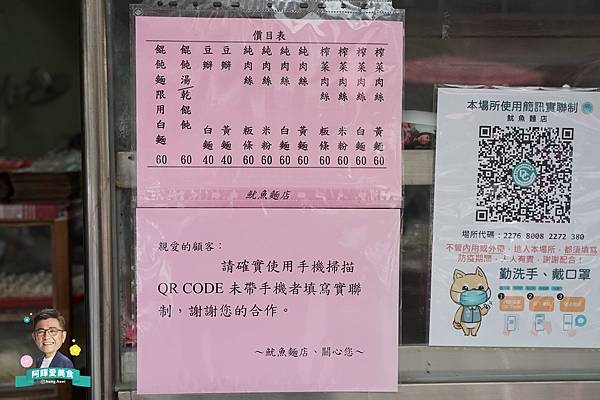 價目表
榨菜肉絲 黃麵 60
榨菜肉絲 白麵 60
榨菜肉絲 米粉 60
榨菜肉絲 板條 60
純肉絲 黃麵 60
純肉絲 白麵 60
純肉絲 米粉 60
純肉絲 板條 60
豆瓣 黃麵 40
豆瓣 白麵 40
餛飩湯/乾餛飩 60
餛飩麵限用白麵 60
魷魚麵店
親愛的顧客：
請確實使用手機掃描
QR CODE 未帶手機者填寫實聯
制，謝謝您的合作。
～魷魚麵店、關心您～
本場所使用簡訊實聯制
魷魚麵店
場所代碼：2276 8008 2272 380
不管內用或外帶，進入本場所，都須填寫
防疫期間，人人有責，謝謝配合！
勤洗手、戴口罩
1
2
3
阿輝愛美食